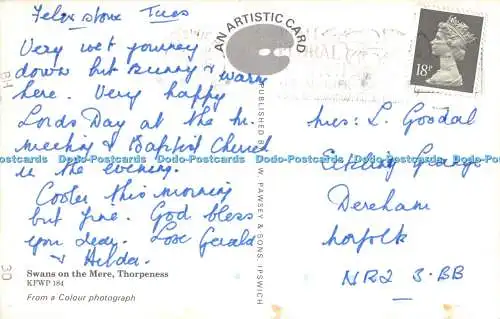 Felixstowe Tues
Very wet journey
down but sunny & warm
here. Very happy
Lords Day at the m.
meeting & Baptist Church
in the evening.
Cooler this morning
but fine. God bless
you dear. Love Gerald
& Hilda.
Swans on the Mere, Thorpeness
KFWP 184
From a Colour photograph
AN ARTISTIC CARD
PUBLISHED BY W. PAWSEY & SONS, IPSWICH
18P
Mrs: L. Goodal
George
Dereham
Norfolk
NR2 3.BB
Dodo-Postcards Dodo-Postcards Dodo-Postcards Dodo-Postcards Dodo-Postcards Dodo-Postcards